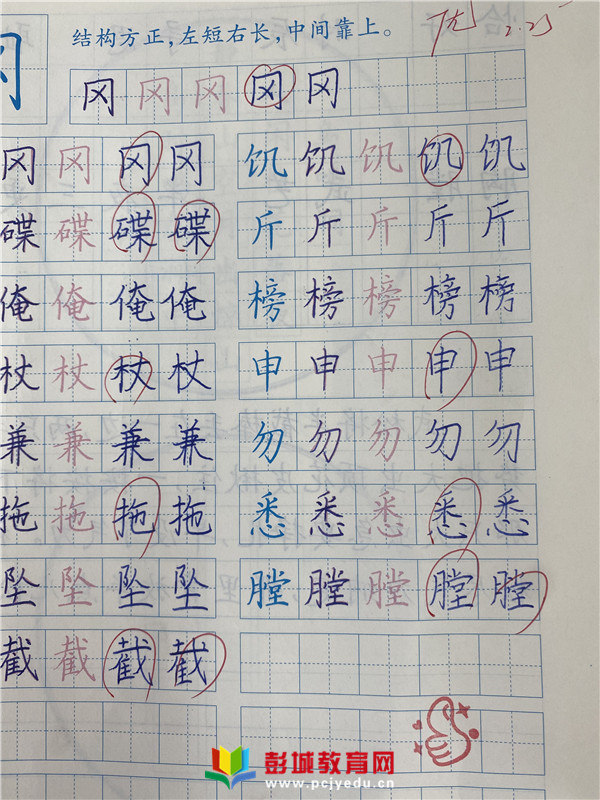 结构方正,左短右长,中间靠上。 优 2.25
冈 冈 冈 冈 冈
冈 冈 冈 冈
碟 碟 碟 碟
俺 俺 俺 俺
杖 杖 杖 杖
兼 兼 兼 兼
拖 拖 拖 拖
坠 坠 坠 坠
截 截 截 截
饥 饥 饥 饥 饥
斤 斤 斤 斤 斤
榜 榜 榜 榜 榜
申 申 申 申 申
勿 勿 勿 勿 勿
悉 悉 悉 悉 悉
膛 膛 膛 膛 膛
彭城教育网
www.pcjyedu.cn